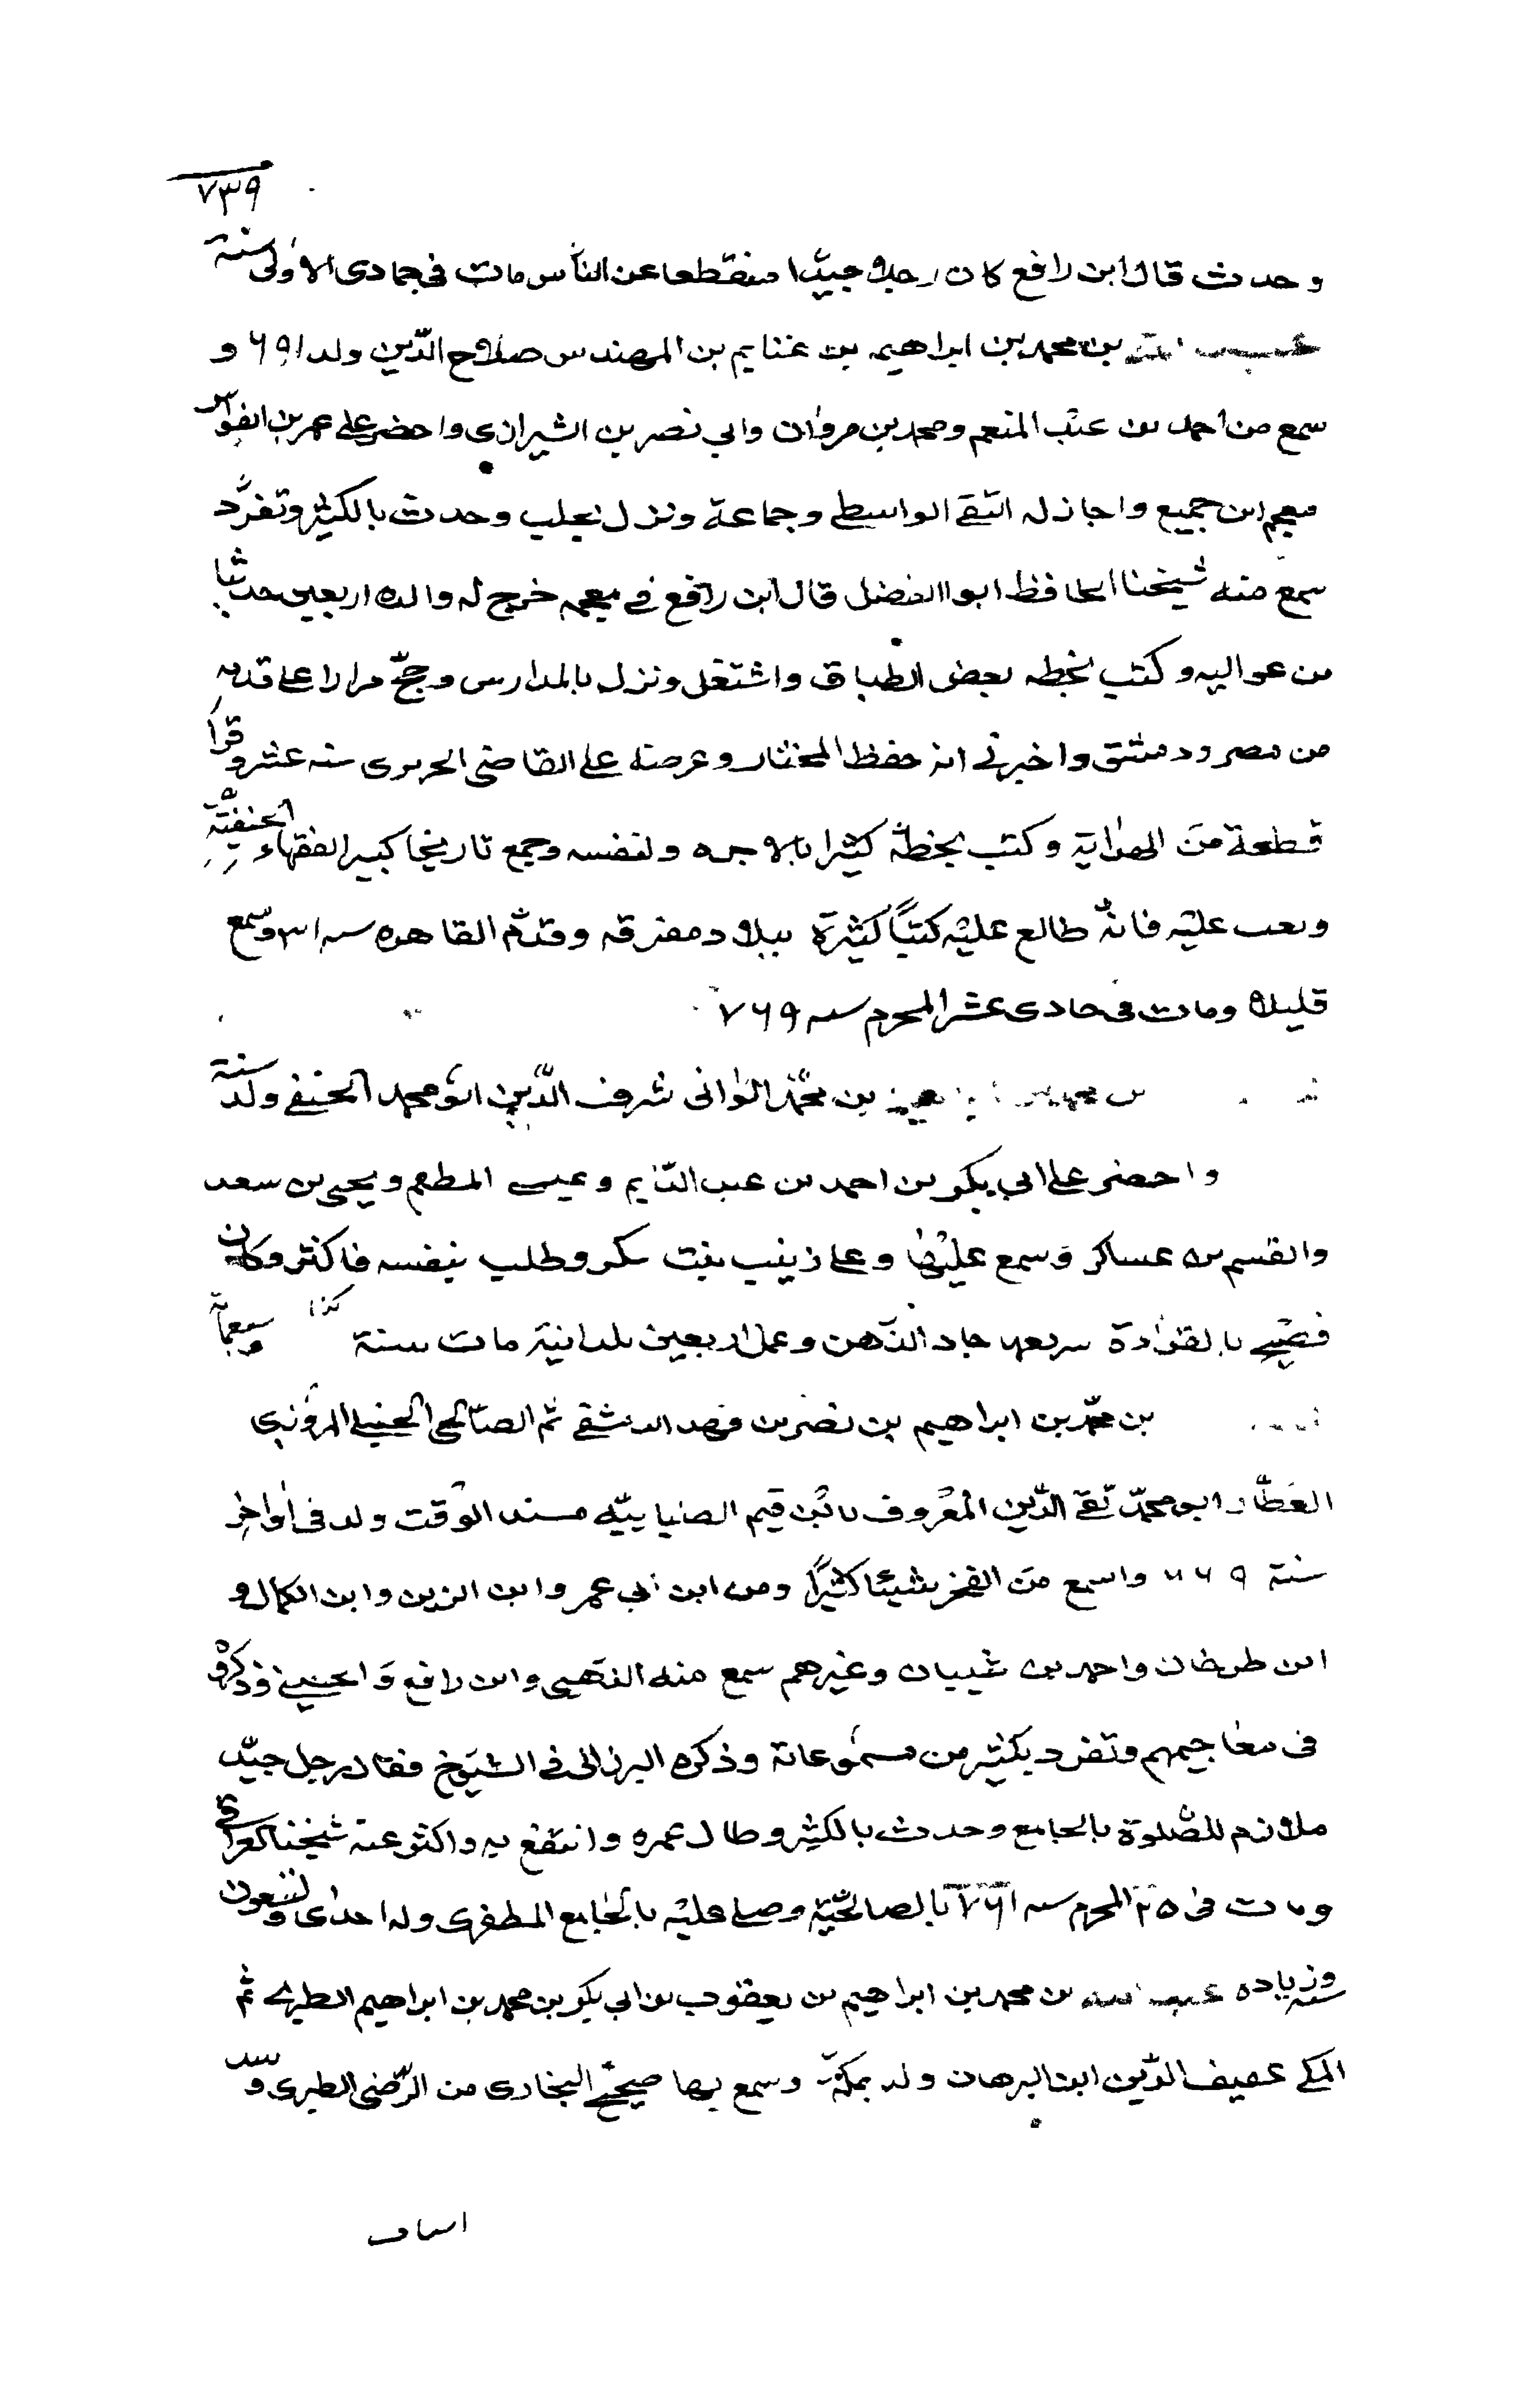 ٧٣٩
وحدث قال ابن رافع كان رجلا جيدا منقطعا عن الناس مات في جمادى الاولى سنة
عبد الله بن محمد بن ابراهيم بن غنايم بن المهندس صلاح الدّين ولد ٦٩١ و
سمع من احمد بن عبد المنعم ومحمد بن مروان وابي نصر بن الشيرازي واحضر على عمر بن القواس
معجم ابن جميع واجاز له التقي الواسطي وجماعة ونزل بحلب وحدث بالكثير وتفرّد
سمع منه شيخنا الحافظ ابو الفضل قال ابن رافع في معجمه خرج له والده اربعين حديثا
من عواليه وكتب بخطه بعض الطباق واشتغل ونزل بالمدارس وحجّ مرارا على قدميه
من مصر ودمشق واخبرني انه حفظ المختار وعرضه على القاضي الحريري سنه عشر وقرا
قطعة من الهداية وكتب بخطه كثيرا بالاجره ولنفسه وجمع تاريخا كبير الفقهاء الحنفيّة
وتعب عليه فانه طالع عليه كتبًا كثيرة ببلاد مفترقه وقدم القاهره سنه ٣١ وسمع
قليلا ومات في حادى عشر المحرم سنه ٧٦٩
بن محمد بن ابراهيم بن محمّد الواني شرف الدّين ابو محمد الحنفي ولد سنة
واحضر على ابي بكر بن احمد بن عبد الدّايم وعيسى المطعم ويحيى بن سعد
والقسم بن عساكر وسمع عليهما وعلى زينب بنت سكر وطلب بنفسه فاكثر وكان
فصيح القراءة سريعها جاد الذّهن وعمل اربعين بلدانية مات سنة كذا وسبعمائة
بن محمّد بن ابراهيم بن نصر بن فهد الدمشقي ثم الصّالحي الحنبلي المروني
العطّار ابو محمدّ تقي الدّين المعروف بابن قيم الضيايّيه مسند الوقت ولد في أواخر
سنة ٦٦٩ واسمع من الفخر شيئا كثيرًا ومن ابن ابي عمر وابن الزين وابن الكمال و
ابن طرخان واحمد بن شيبان وغيرهم سمع منه الذهبي وابن رافع والحسيني وذكروه
في معاجيمهم وتفرد بكثير من مسموعاته وذكره البرزالي في الشيوخ فقال رجل جيّد
ملازم للصّلوة بالجامع وحدث بالكثير وطال عمره وانتفع به واكثر عنه شيخنا العراقي
ومات في ٢٥ المحرم سنه ٧٦١ بالصالحيّة وصلي عليه بالجامع المظفري وله احدى وتسعون
سنه وزياده عبد الله بن محمد بن ابراهيم بن يعقوب بن ابي بكر بن محمد بن ابراهيم الطبري ثم
المكي عفيف الدّين ابن البرهان ولد بمكّة وسمع بها صحيح البخاري من الرّضي الطبري و